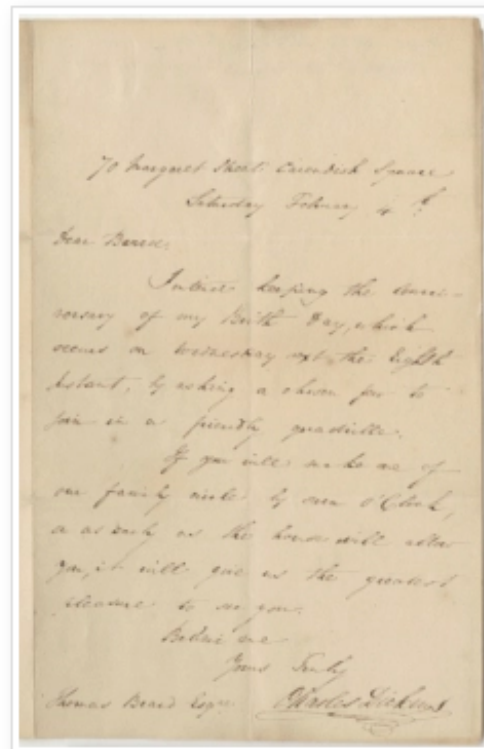 70 Margaret Street Cavendish Square
Saturday February 4th
Dear Beard.
I intend keeping the anni-
versary of my Birth Day, which
occurs on Wednesday next, the Eighth
Instant, by asking a chosen few to
join in a friendly quadrille.
If you will make one of
our family circle by seven o'Clock,
or as early as the house will allow
you, it will give us the greatest
pleasure to see you.
Believe me
Yours Truly
Thomas Beard Esqre. Charles Dickens